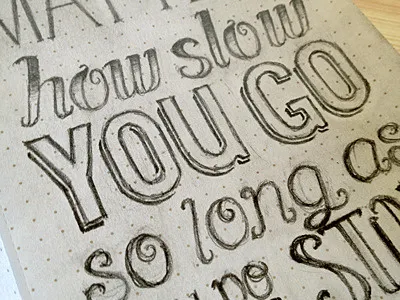 MATT
how slow
YOU GO
so long as